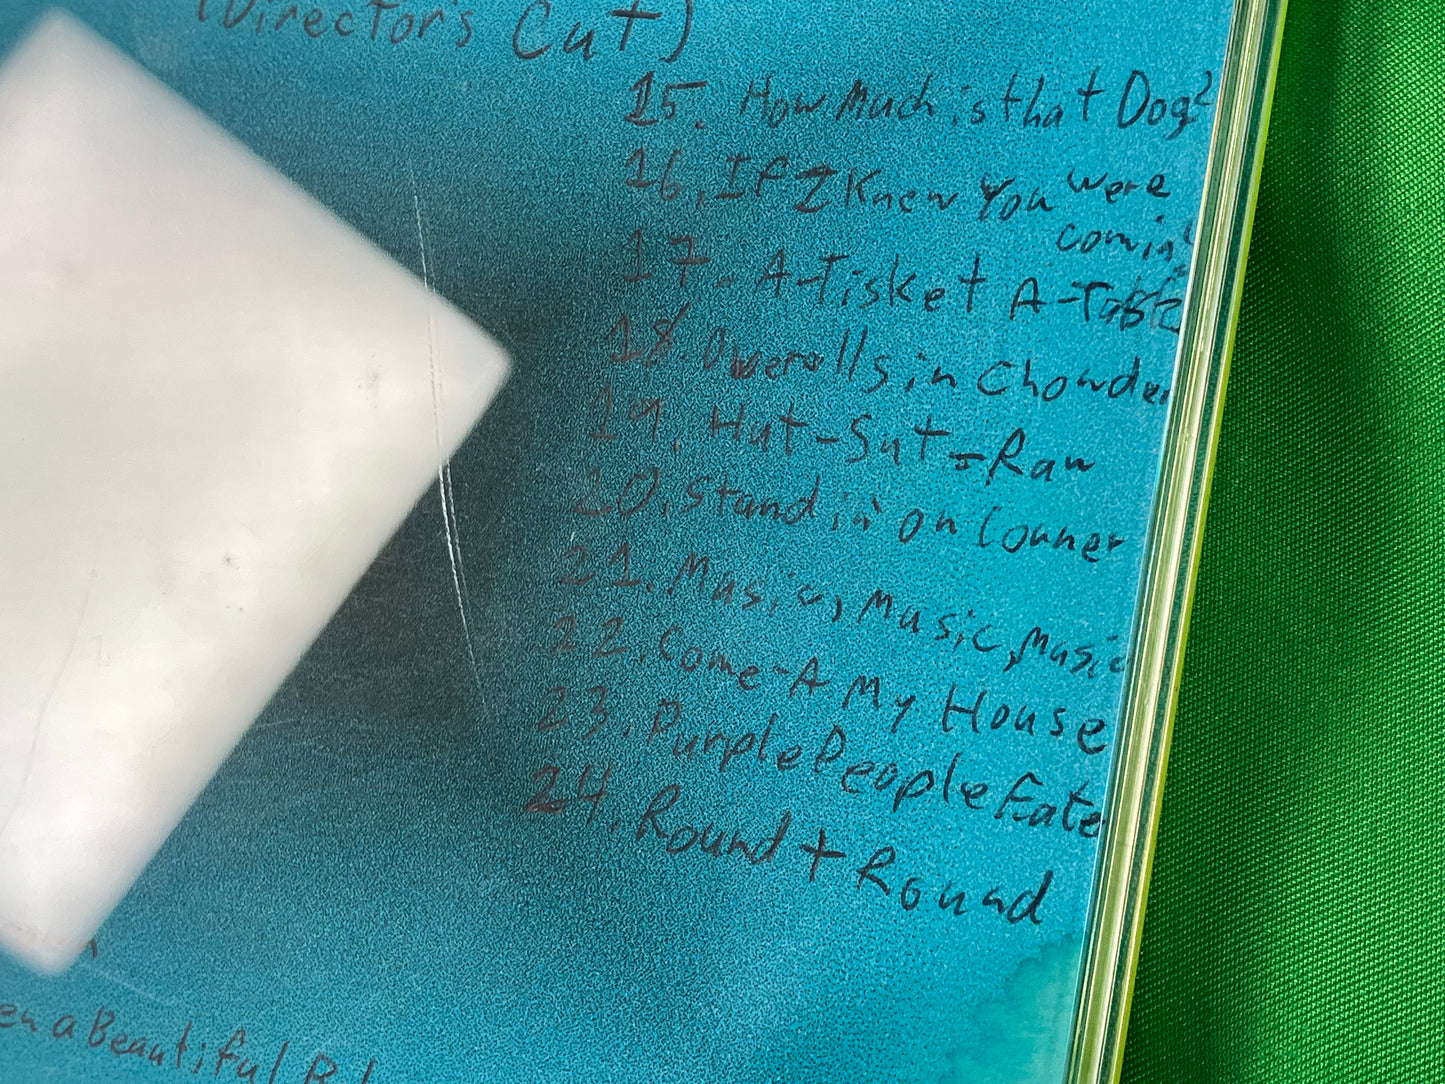 (Director's Cut)
15. How Much is that Dog?
16. If I Knew You were
comin'
17. A-Tisket A-Taste
18. Overalls in Chowder
19. Hut-Sut-Raw
20. Standin' on Conner
21. Music, Music, Music
22. Come-A My House
23. Purple People Eate
24. Round + Round
en a Beautiful